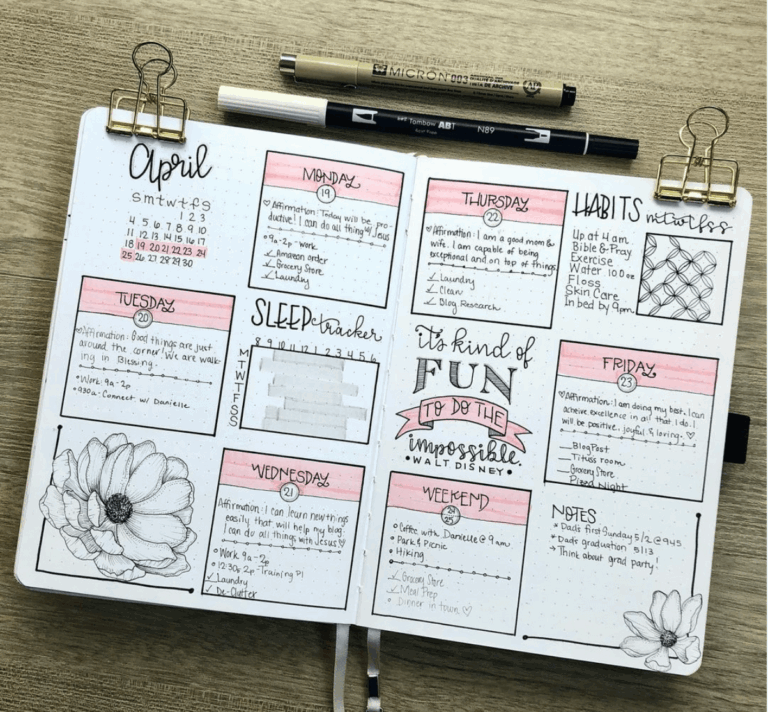 MICRON 003
Tombow ABT
N89
April
s m t w t f s
1 2 3
4 5 6 7 8 9 10
11 12 13 14 15 16 17
18 19 20 21 22 23 24
25 26 27 28 29 30
MONDAY
19
Affirmation: Today will be pro-
ductive! I can do all things w/ Jesus
9a-2p work
Amazon order
Grocery Store
Laundry
TUESDAY
20
Affirmation: Good things are just
around the corner! We are walk-
ing in Blessing.
Work 9a-2p
930a-Connect w/ Danielle
SLEEP tracker
8 9 10 11 12 1 2 3 4 5 6
M
T
W
T
F
S
S
WEDNESDAY
21
Affirmation: I can learn new things
easily that will help my blog.
I can do all things with Jesus
Work 9a-2p
12:30 & 2p-Training
Laundry
De-Clutter
THURSDAY
22
Affirmation: I am a good mom &
wife. I am capable of being
exceptional and on top of things.
Laundry
Clean
Blog Research
HABITS mtwtfss
Up at 4 am
Bible & Pray
Exercise
Water 100oz
Floss
Skin Care
In bed by 9pm
it's kind of
FUN
TO DO THE
impossible.
WALT DISNEY
FRIDAY
23
Affirmation: I am doing my best. I can
acheive excellence in all that I do. I
will be positive, joyful & loving.
Blog Post
Titus's room
Grocery Store
Pizza Night
WEEKEND
24
25
Coffee with Danielle @ 9am
Park & Picnic
Hiking
Grocery Store
Meal Prep
Dinner in town
NOTES
Dad's first Sunday 5/2 @ 945
Dad's graduation 5/13
Think about grad party!